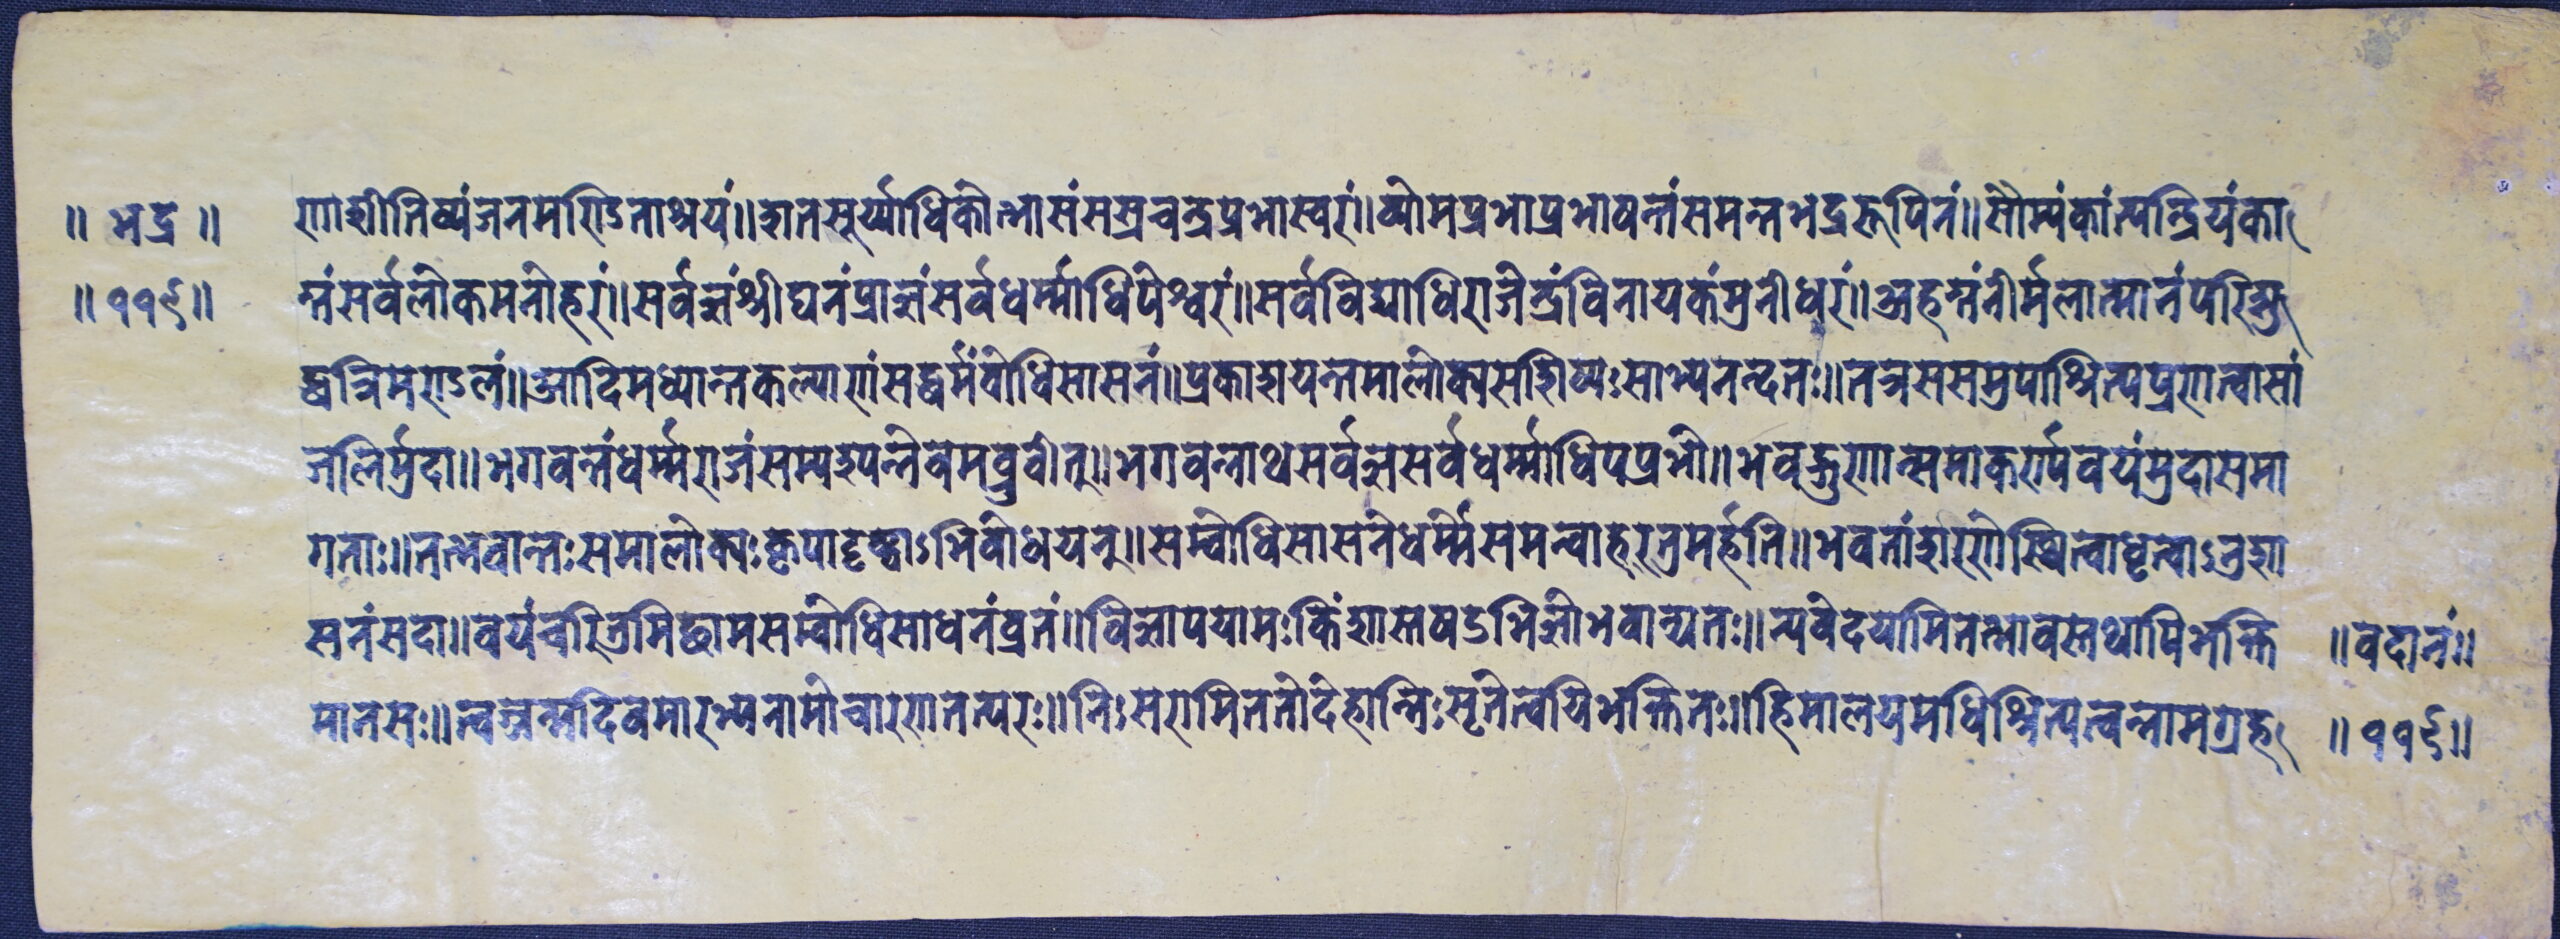 ॥ भद्र ॥
॥ ११९ ॥
णाशीतिव्यंजनमण्डिताश्रयं॥शतसूर्य्याधिकोत्भासंसस्रचन्द्रप्रभास्वरं॥व्योमप्रभाप्रभावन्तंसमन्तभद्ररूपिनं॥सौम्यंकांत्यन्द्रियंका
न्तंसर्वलोकमनोहरं॥सर्वज्ञंश्रीघनंप्राज्ञंसर्वधर्म्माधिपेश्वरं॥सर्वविद्याधिराजेन्द्रंविनायकंमुनीश्वरं॥अर्हन्तंनीर्मलात्मानंपरिशु
द्धत्रिमण्डलं॥आदिमध्यान्तकल्याणंसद्धर्मंबोधिसासनं॥प्रकाशयन्तमालोक्यसशिष्यःसाभ्यनन्दतः॥तत्रससमुपाश्रित्यप्रणत्वासां
जलिर्मुदा॥भगवन्तंधर्म्मराजंसम्पश्यन्नेवमब्रुवीत्॥भगवन्नाथसर्वज्ञसर्वधर्म्माधिपप्रभो॥भवद्गुणान्समाकर्ण्यवयंमुदासमा
गताः॥तत्भवान्तःसमालोक्यःकृपादृष्ट्वाऽभिबोधयन्॥सम्बोधिसासनेधर्म्मेसमन्वाहरतुमर्हति॥भवतांशरणेस्थित्वाधृत्वाऽनुशा
सनंसदा॥वयंचरितुमिच्छामसम्बोधिसाधनंव्रतं॥विज्ञापयामःकिंशास्तषडभिज्ञोभवान्यतः॥न्यवेदयामितत्भावस्तथापिभक्ति
मानसः॥त्वज्जन्मदिवमारभ्यनामोच्चारणतत्परः॥निःसरामिततोदेहान्निःसृतेत्वयिभक्तितः॥हिमालयमधिश्रित्यत्वन्नामग्रह
॥ वदानं॥
॥ ११९ ॥